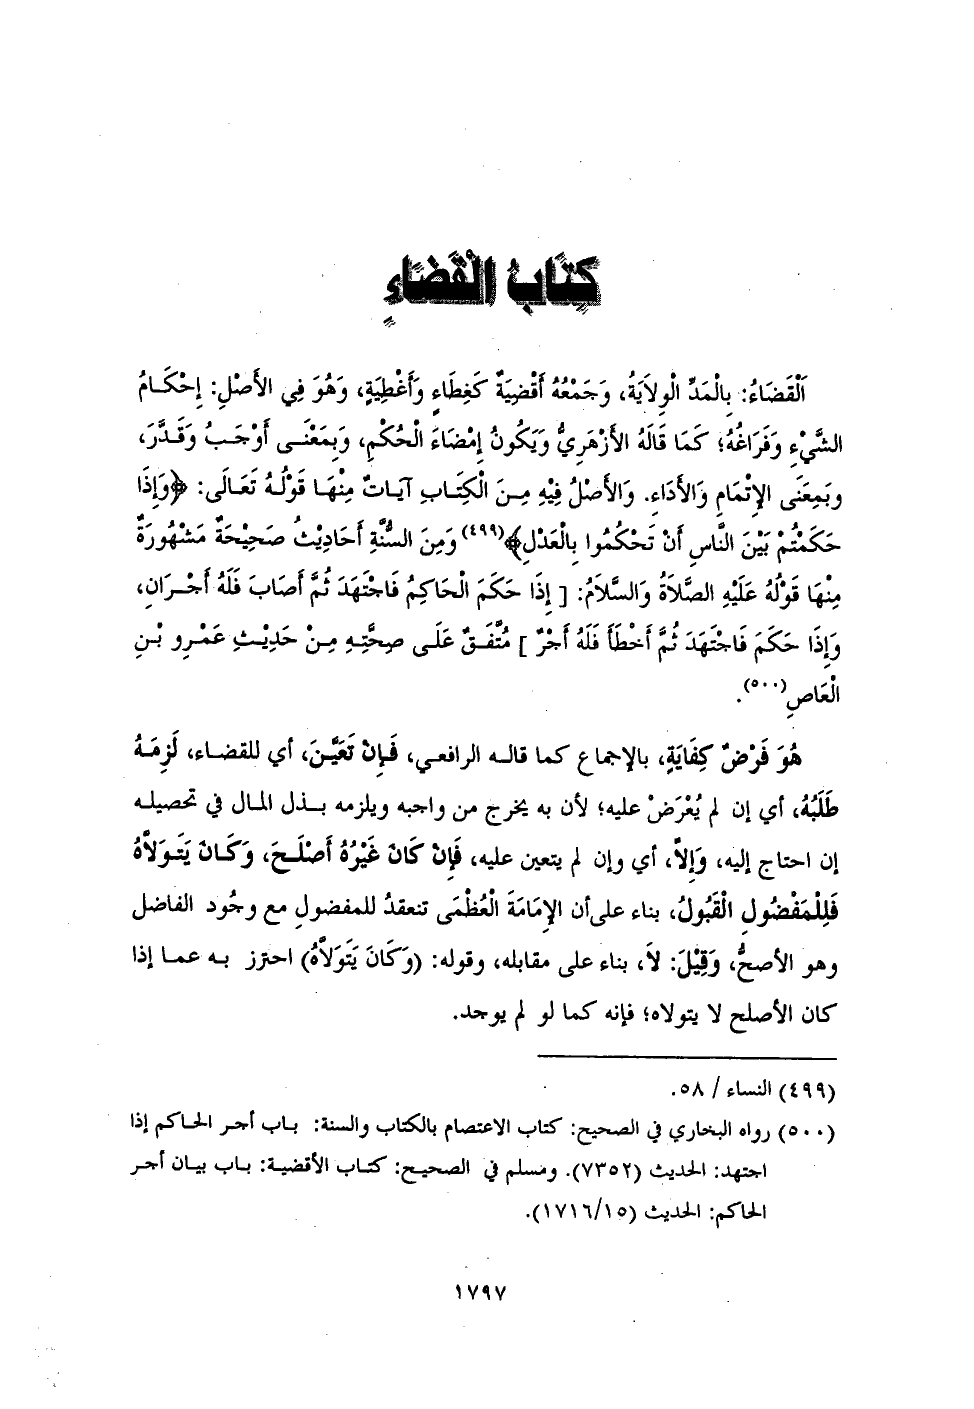 كِتَابُ الْقَضَاءِ
اَلْقَضَاءُ: بِالْمَدِّ الْوِلاَيَةُ، وَجَمْعُهُ أَقْضِيَةٌ كَغِطَاءٍ وَأَغْطِيَةٍ، وَهُوَ فِي الأَصْلِ: إِحْكَـامُ
الشَّيْءِ وَفَرَاغُهُ؛ كَمَا قَالَهُ الأَزْهَرِيُّ وَيَكُونُ إِمْضَاءَ الْحُكْمِ، وَبِمَعْنَـى أَوْجَبُ وَقَـدَّرَ،
وَبِمِعَنَى الإِتْمَامِ وَالأَدَاءِ. وَالأَصْلُ فِيْهِ مِـنَ الْكِتَـابِ آيَـاتٌ مِنْهَـا قَوْلُـهُ تَعَـالَى: ﴿وَإِذَا
حَكَمْتُمْ بَيْنَ النَّاسِ أَنْ تَحْكُمُوا بِالْعَدْلِ﴾(٤٩٩) وَمِنَ السُّنَّةِ أَحَادِيْثُ صَحِيْحَةٌ مَشْهُورَةٌ
مِنْهَا قَوْلُهُ عَلَيْهِ الصَّلاَةُ وَالسَّلاَمُ: [ إِذَا حَكَمَ الْحَاكِمُ فَاجْتَهَدَ ثُمَّ أَصَابَ فَلَهُ أَجْـرَانِ،
وَإِذَا حَكَمَ فَاجْتَهَدَ ثُمَّ أَخْطَأَ فَلَهُ أَجْرٌ ] مُتَّفَـقٌ عَلَـى صِحَّتِـهِ مِـنْ حَدِيْـثِ عَمْـرِو بْـنِ
الْعَاصِ(٥٠٠).
هُوَ فَرْضُ كِفَايَةٍ، بالإجماع كما قالـه الرافعـي، فَـإِنْ تَعَيَّـنَ، أي للقضـاء، لَزِمَـهُ
طَلَبُهُ، أي إن لم يُعْرَضْ عليه؛ لأن به يخرج من واجبه ويلزمه بـذل المـال في تحصيلـه
إن احتاج إليه، وَإِلاَّ، أي وإن لم يتعين عليه، فَإِنْ كَانَ غَيْرُهُ أَصْلَـحَ، وَكَـانَ يَتَـوَلاَّهُ
فَلِلْمَفْضُولِ الْقَبُولُ، بناء على أن الإِمَامَةَ الْعُظْمَى تنعقدُ للمفضولِ مع وجُود الفاضل
وهو الأصحُّ، وَقِيْلَ: لاَ، بناء على مقابله، وقوله: (وَكَانَ يَتَوَلاَّهُ) احترز بـه عمـا إذا
كان الأصلح لا يتولاه؛ فإنه كما لو لم يوجد.
(٤٩٩) النساء / ٥٨.
(٥٠٠) رواه البخاري في الصحيح: كتاب الاعتصام بالكتاب والسنة: بـاب أجـر الحـاكم إذا
اجتهد: الحديث (٧٣٥٢). ومسلم في الصحيح: كتـاب الأقضيـة: بـاب بيـان أجـر
الحاكم: الحديث (١٧١٦/١٥).
١٧٩٧